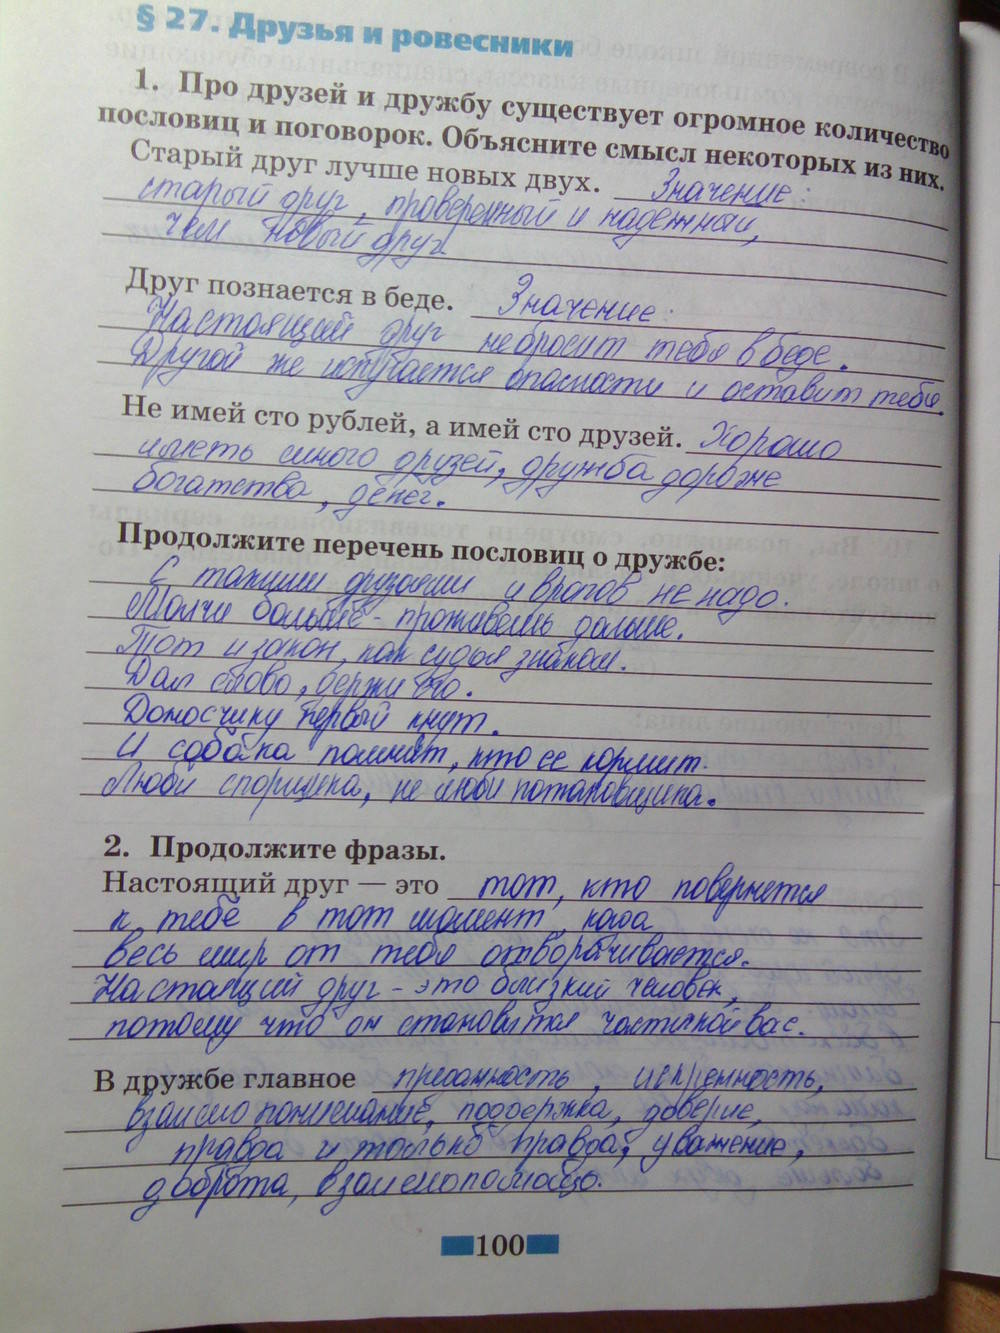 § 27. Друзья и ровесники
1. Про друзей и дружбу существует огромное количество
пословиц и поговорок. Объясните смысл некоторых из них.
Старый друг лучше новых двух. Значение:
старый друг, проверенный и надежный,
чем новый друг
Друг познается в беде. Значение:
Настоящий друг не бросит тебя в беде.
Другой же испугается опасности и оставит тебя.
Не имей сто рублей, а имей сто друзей. Хорошо
иметь много друзей, дружба дороже
богатства, денег.
Продолжите перечень пословиц о дружбе:
С такими друзьями и врагов не надо.
Молчи больше - проживешь дольше.
Тот и закон, как судья знаком.
Дал слово, держи его.
Доносчику первый кнут.
И собака помнит, кто ее кормит.
Люби спорщика, не люби потаковщика.
2. Продолжите фразы.
Настоящий друг — это тот, кто повернется
к тебе в тот момент, когда
весь мир от тебя отворачивается.
Настоящий друг - это близкий человек,
потому что он становится частичкой вас.
В дружбе главное преданность, искренность,
взаимопонимание, поддержка, доверие,
правда и только правда, уважение,
доброта, взаимопомощь.
100